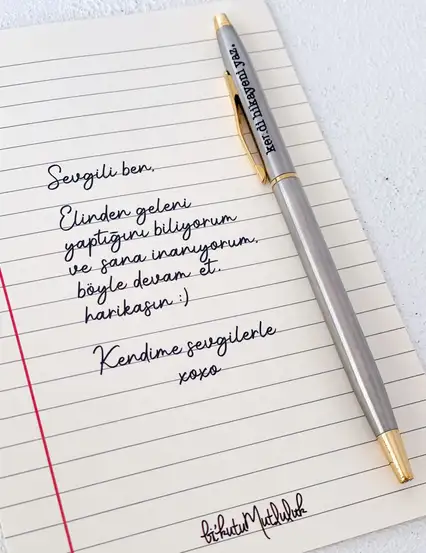 Sevgili ben,
Elinden geleni
yaptığını biliyorum
ve sana inanıyorum.
böyle devam et.
harikasın :)
Kendime sevgilerle
xoxo
kendi hikayeni yaz.
bi'kutuMutluluk